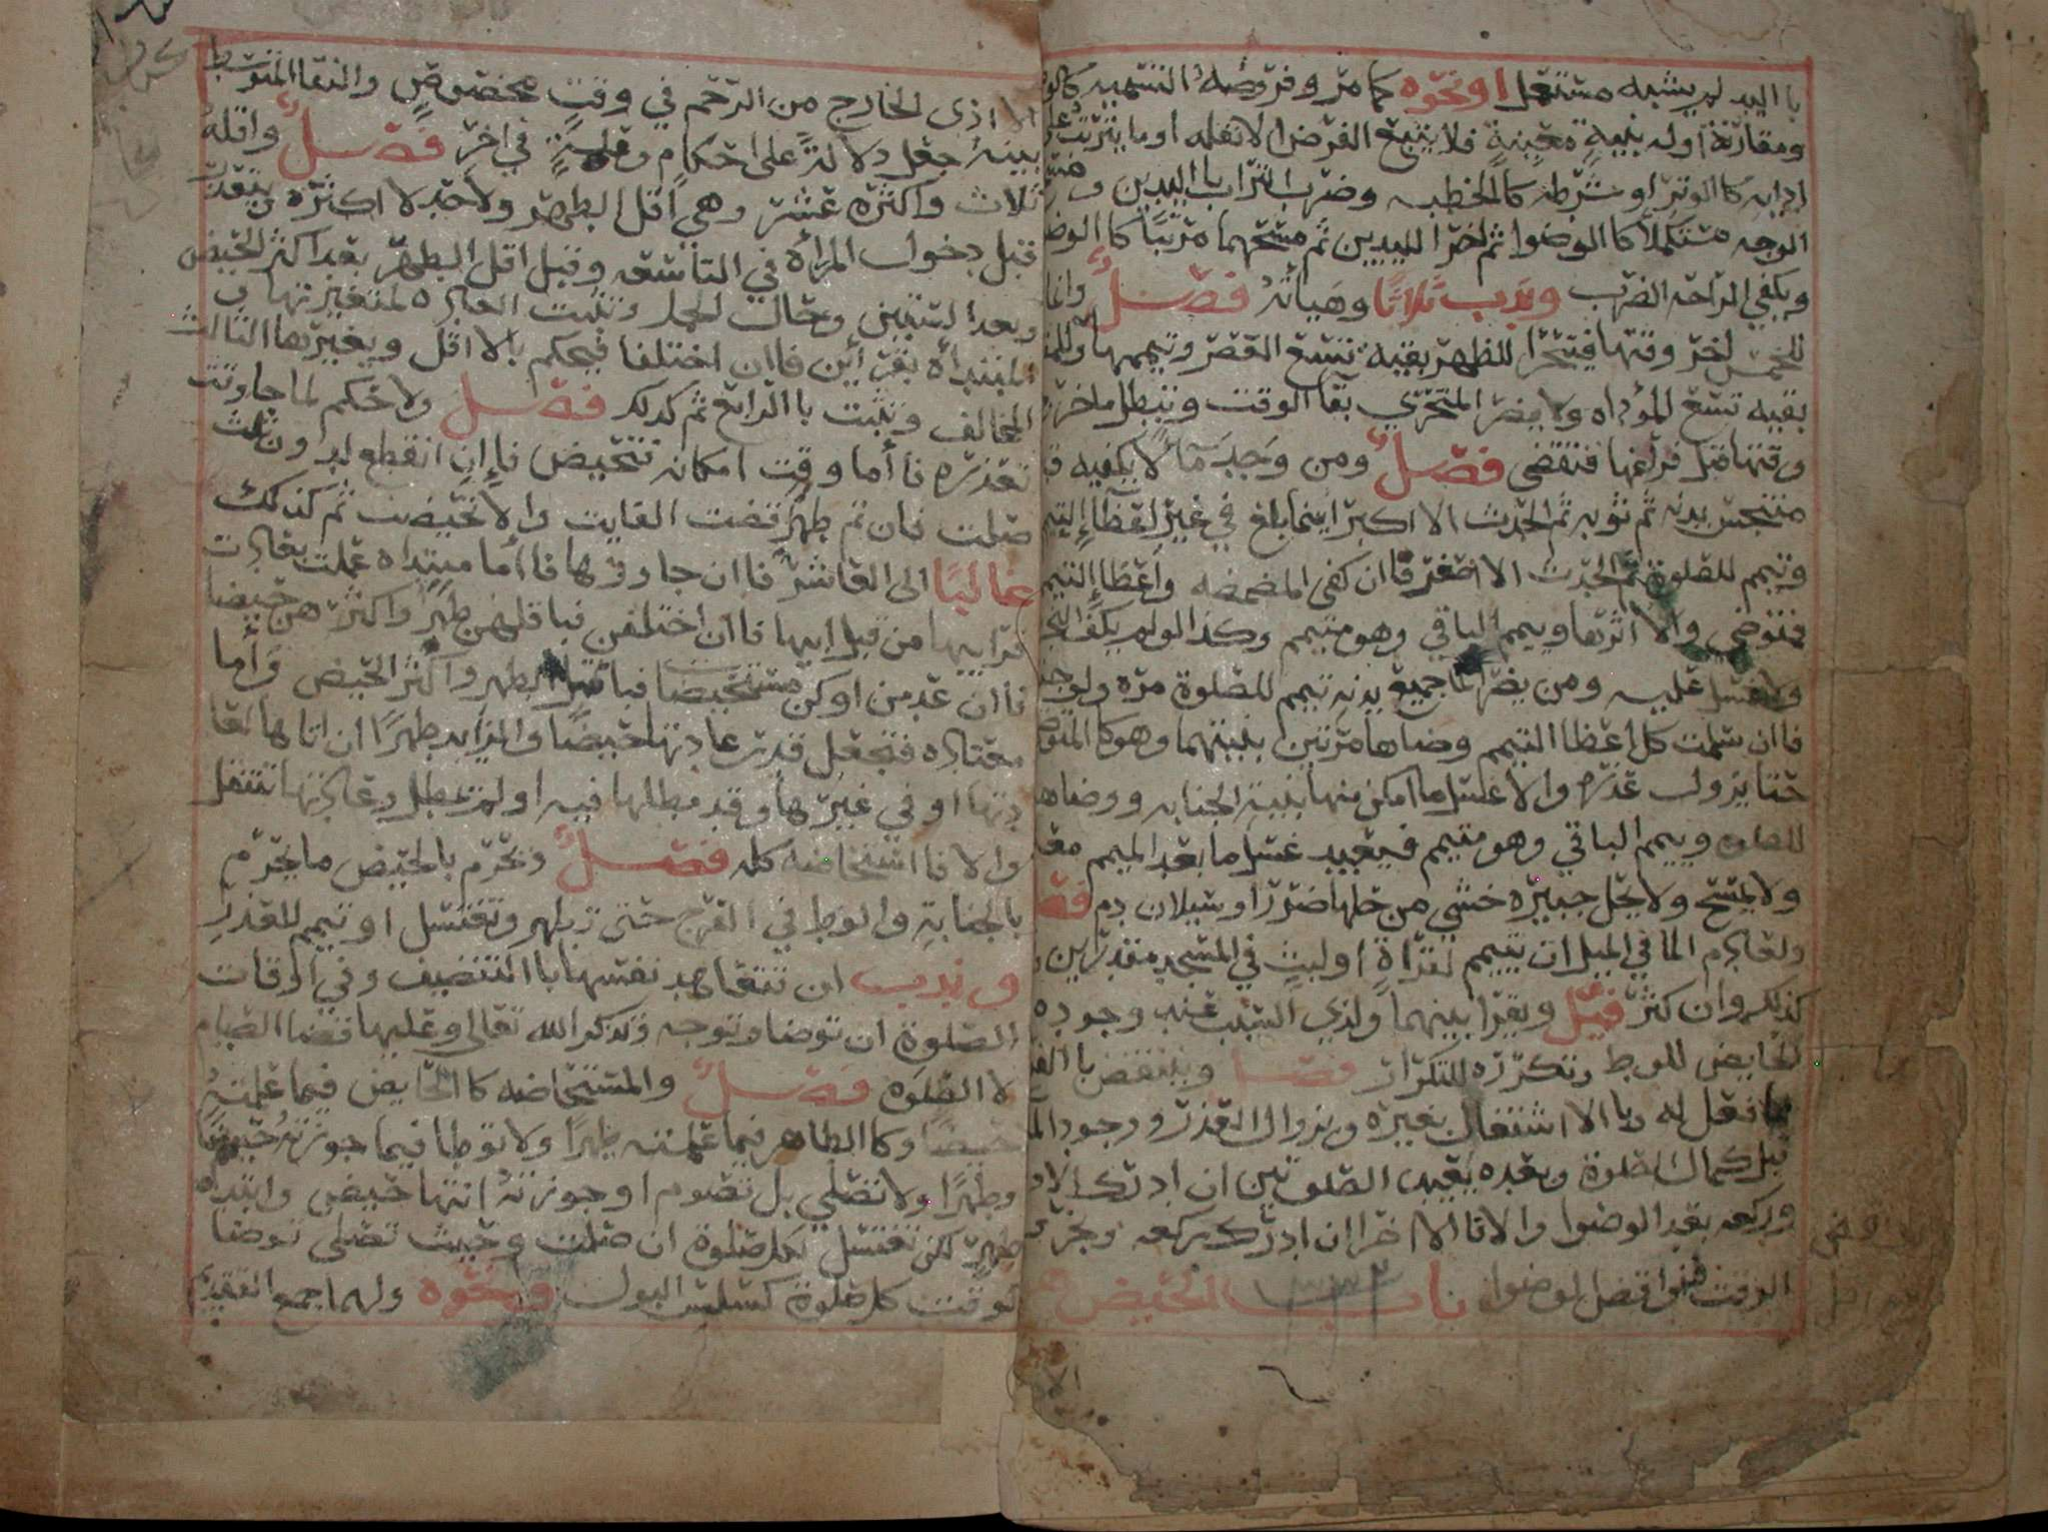 با اليد لم يشبه مستعمل او نحوه كما مر وفروضه التسميه كالوضو
ومقارنة اوله بنية معينة فلا يتبع الفرض الا نفله او ما يترتب على
ادايه كا الوتر او شرطه كا الخطبه وضرب التراب با اليدين ومسح
الوجه مستكملا كا الوضوا ثم اخرا لليدين ثم مسحهما مرتبا كا الوضو
ويكفي الراحة الضرب وندب ثلاثا وهياته فصل وانما
للخمس اخر وقتها فيتحرا للظهر بقيه تسع العصر وتيممها وللمغرب
بقيه تسع المؤداه ولا يضر المتحري بقا الوقت وتبطل ما خرج
وقتها قبل فراغها فتقضى فصل ومن وجد ما لا يكفيه قدم
متنجس بدنه ثم ثوبه ثم الحدث الا اكبر اينما بلغ في غير اعضا التيمم
وتيمم للصلوة ثم الحدث الا اصغر فا ان كفى المضمضه واعضا التيمم
فمتوضي والا اثرها ويمم الباقي وهو متيمم وكذا لو لم يكف النجس
ولا غسل عليه ومن يضر الما جميع بدنه تيمم للصلوة مره ولو جنبا
فا ان سلمت كل اعضا التيمم وضاها مرتين بنيتهما وهو كا المتوضي
حتا يزول عذره والا غسل ما امكن منها بنية الجنابه ووضاهن
للصلوه ويمم الباقي وهو متيمم فيعيد غسل ما بعد الميمم معه
ولا يمسح ولا يحل جبيره خشي من حلها ضررا او سيلان دم فصل
ولعادم الما في الميل ان يتيمم لقراة او لبث في المسجد مقدرين
كذلك وان كثر قيل ويقرا بينهما ولذي السبب عند وجوده
الحايض للوط وتكرره للتكرار فصل وينتقض با الفراغ
ما فعل له وبا الا اشتغال بغيره وبزوال العذر ووجود الما
قبل كمال الصلوة وبعده يعيد الصلوتين ان ادرك الاولى
وركعه بعد الوضوا والا فا الا اخرا ان ادرك ركعه وبخروج
الوقت فصل الوضوا باب الحيض هو
الا اذى الخارج من الرحم في وقت مخصوص والنقا المتوسط
بينه جعل دلالة على احكام وعلة في اخر فصل واقله
ثلاث واكثره عشر وهي اقل الطهر ولا حد لا اكثره ويتعذر
قبل دخول المراة في التاسعه وقبل اقل الطهر بعد اكثر الحيض
وبعد الستين وحال الحمل وتثبت العاده لمتغيرتها و
المبتداه بقرأين فا ان اختلفا فيحكم با الا اقل ويغيرها الثالث
المخالف وتثبت با الرابع ثم كذلك فصل ولا حكم لما جا وقت
تعذره فأما وقت امكانه فتحيض فا ان انقطع لدون ثلث
صلت فان تم طهرا قضت الفايت والا تحيضت ثم كذلك
غالبا الى العاشر فا ان جاوزها فا أما مبتداه عملت بعادت
قرايبها من قبل ابيها فا ان اختلفن فبا قلهن طهرا واكثرهن حيضا
فا ان عدمن او كن مستحيضا فبا قل الطهر واكثر الحيض وأما
معتاده فتجعل قدر عادتها حيضا والزايد طهرا ان اتاها لعا
دتها او في غيرها وقد مطلها فيه او لم تمطل وعادتها تنتقل
والا فا استحاضه كله فصل ويحرم بالحيض ما يحرم
بالجنابة والوط في الفرج حتى تطهر وتغتسل او تيمم للعذر
وندب ان تتعاهد نفسها با التنضيف وفي اوقات
الصلوة ان توضا وتوجه وتذكر الله تعالى وعليها قضا الصيام
لا الصلوة فصل والمستحاضه كا الحايض فيما علمته
حيضا وكا الطاهر فيما علمته طهرا ولا توطا فيما جوزته حيضا
وطهرا ولا تصلي بل تصوم او جوزته انتها حيض وابتداه
طهر لكن تغتسل لكل صلوة ان صلت وحيث تصلي توضا
لوقت كل صلوة كسلس البول ونحوه ولهما جمع التقديم